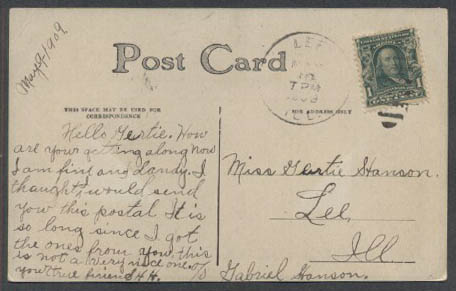 May 9/1909
Post Card
LEE
7 PM
1909
ILL.
1
THIS SPACE MAY BE USED FOR
CORRESPONDENCE
FOR ADDRESS ONLY
Hello Gertie. How
are you getting along now
I am fine and dandy. I
thought I would send
you this postal It is
so long since I got
the ones from you. this
is not a very nice one.
your true friend H.H.
Miss Gertie Hanson.
Lee,
Ill
c/o
Gabriel Hanson.